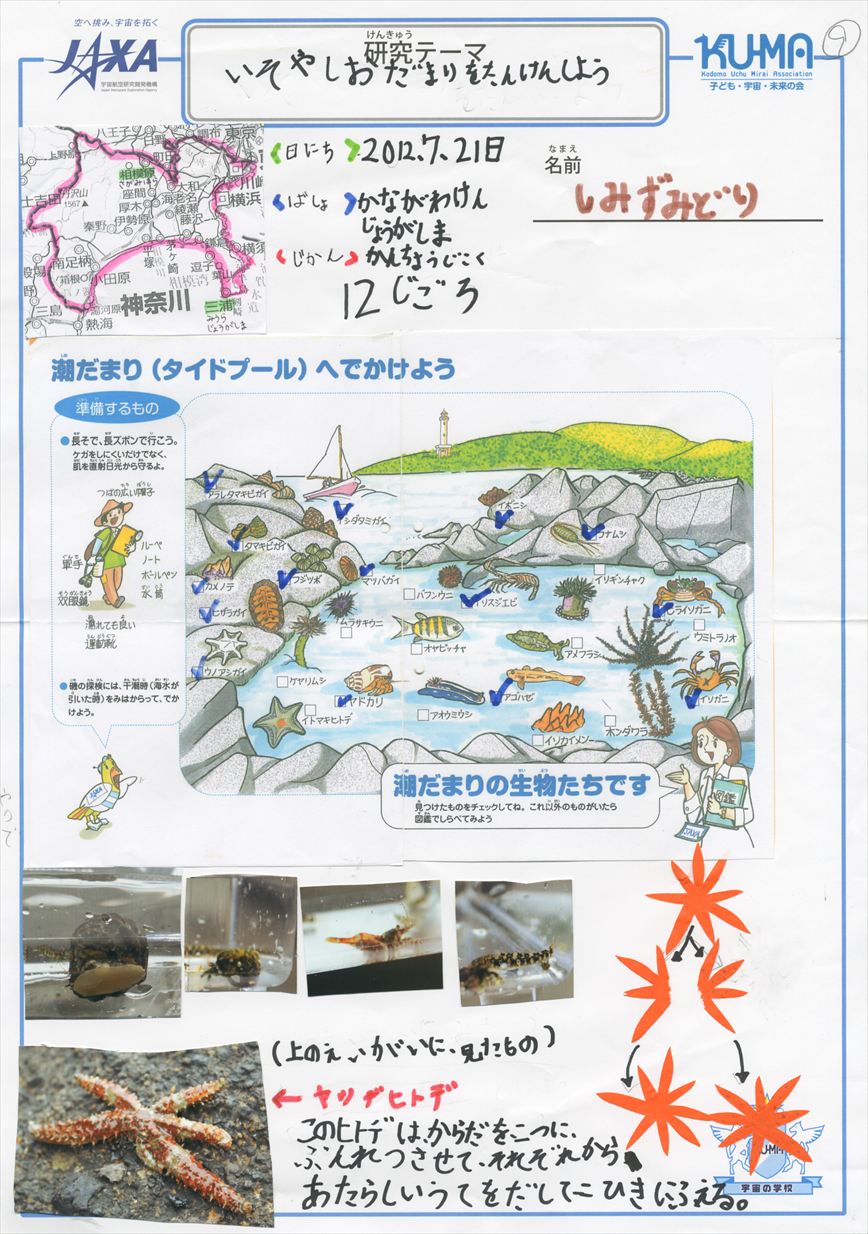 空へ挑み、宇宙を拓く
JAXA
宇宙航空研究開発機構
Japan Aerospace Exploration Agency
けんきゅう
研究テーマ
いそやしおだまりをたんけんしよう
KU-MA
Kodomo Uchu Mirai Association
子ども・宇宙・未来の会
9
八王子
日野
調布
東京
上野原
町田
相模原
さがみはら
川崎
横浜
座間
大和
海老名
綾瀬
厚木
藤沢
丹沢山
1567
富士吉田
秦野
伊勢原
鎌倉
横須
平塚
茅ヶ崎
逗子
葉山
相模湾
御殿場
南足柄
箱根
小田原
神奈川
三島
湯河原
熱海
三浦
みうら
じょうがしま
剱崎
水道
日にち
2012.7.21日
ばしょ
かながわけん
じょうがしま
じかん
かんちょうじこく
12じごろ
なまえ
名前
しみずみどり
潮だまり（タイドプール）へでかけよう
準備するもの
●長そで、長ズボンで行こう。
ケガをしにくいだけでなく、
肌を直射日光から守るよ。
つばの広い帽子
軍手
双眼鏡
ルーペ
ノート
ボールペン
水筒
濡れても良い
運動靴
●磯の探検には、干潮時（海水が
引いた時）をみはからって、でか
けよう。
JAXA
アラレタマキビガイ
イシダタミガイ
イボニシ
フナムシ
タマキビガイ
カメノテ
フジツボ
マツバガイ
バフンウニ
イソスジエビ
イソギンチャク
ヒライソガニ
ヒザラガイ
ムラサキウニ
オヤビッチャ
アメフラシ
ウミトラノオ
ウノアシガイ
ケヤリムシ
ヤドカリ
アオウミウシ
アゴハゼ
イソガニ
イトマキヒトデ
イソカイメン
ホンダワラ
潮だまりの生物たちです
見つけたものをチェックしてね。これ以外のものがいたら
図鑑でしらべてみよう
図鑑
JAXA
(上のえいがいに、見たもの)
←ヤツデヒトデ
このヒトデは、からだを二つに、
ぶんれつさせて、それぞれから
あたらしいうてをだして二ひきにふえる。
KU-MA
宇宙の学校